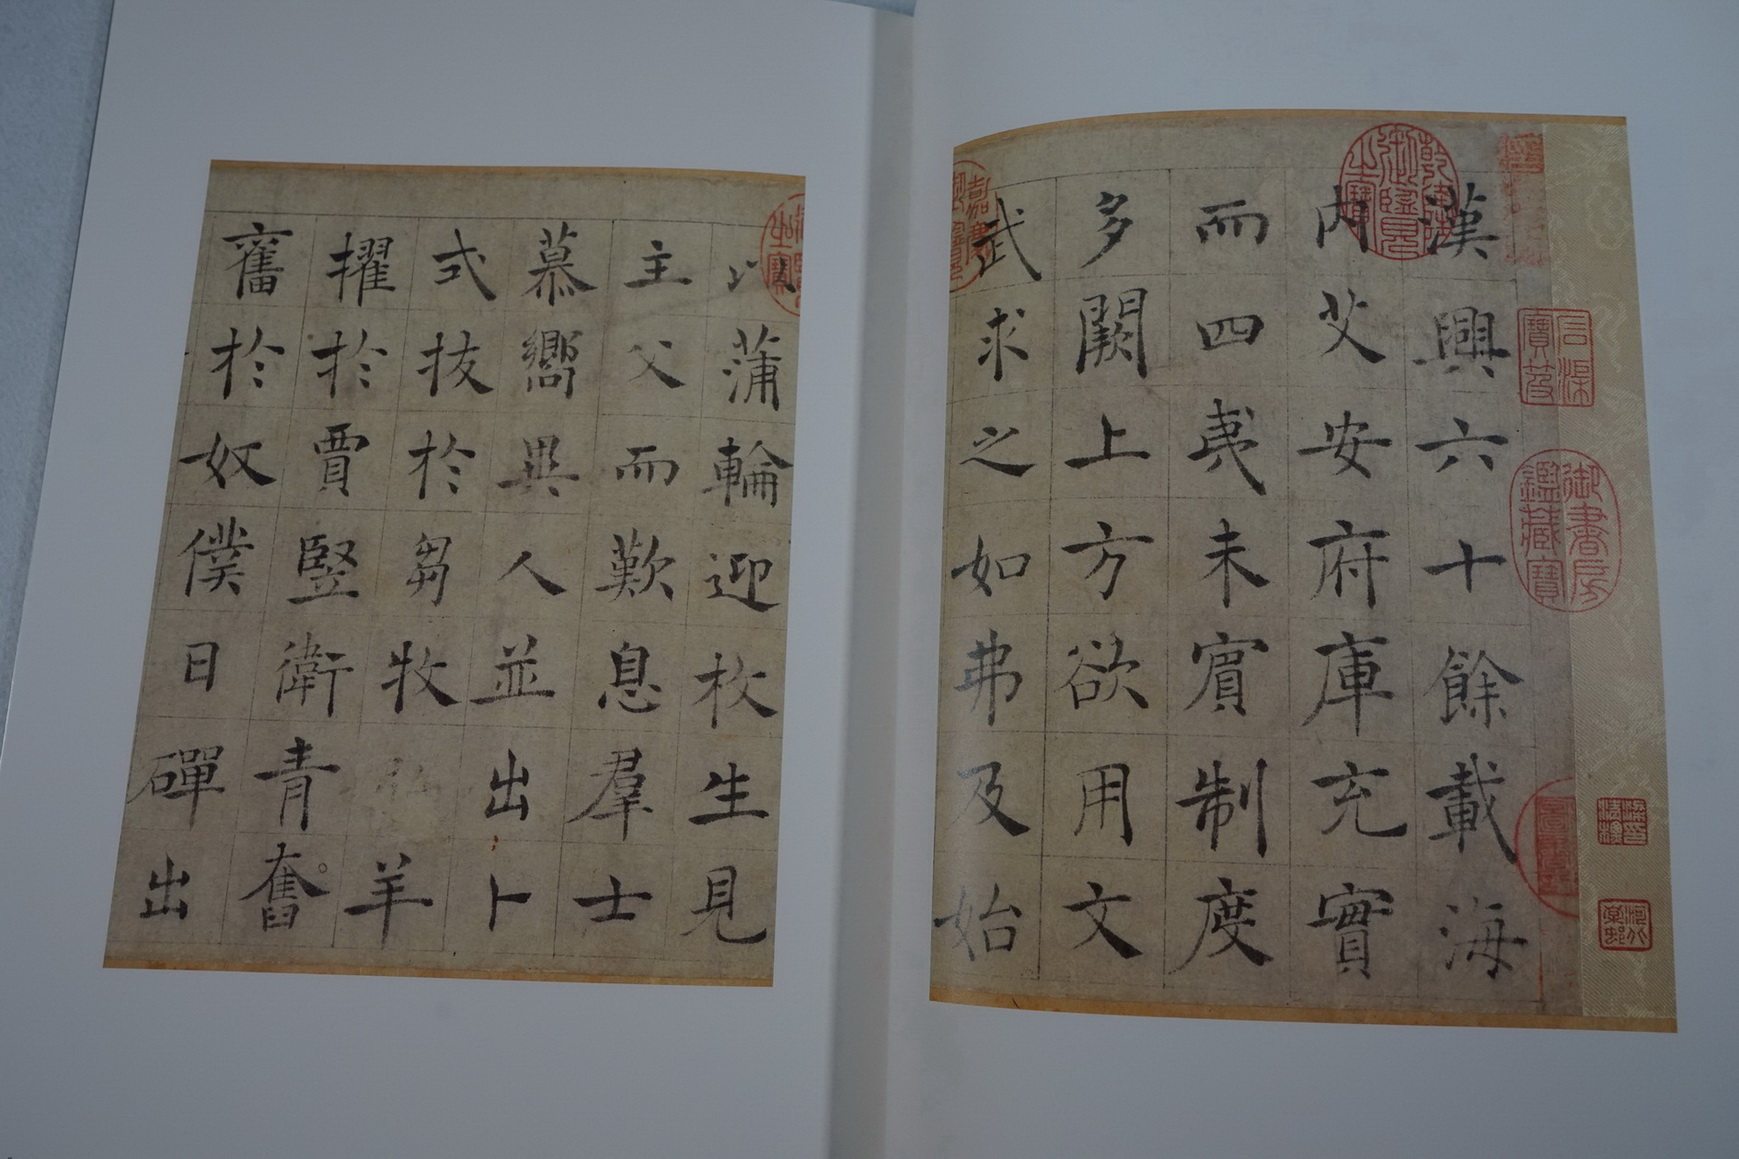 漢興六十餘載海
内艾安府庫充實
而四夷未賓制度
多闕上方欲用文
武求之如弗及始
以蒲輪迎枚生見
主父而歎息羣士
慕嚮異人並出卜
式拔於芻牧羊
擢於賈豎衛青奮
奮於奴僕日磾出
乾隆御覽之寶
石渠寶笈
御書房鑑藏寶